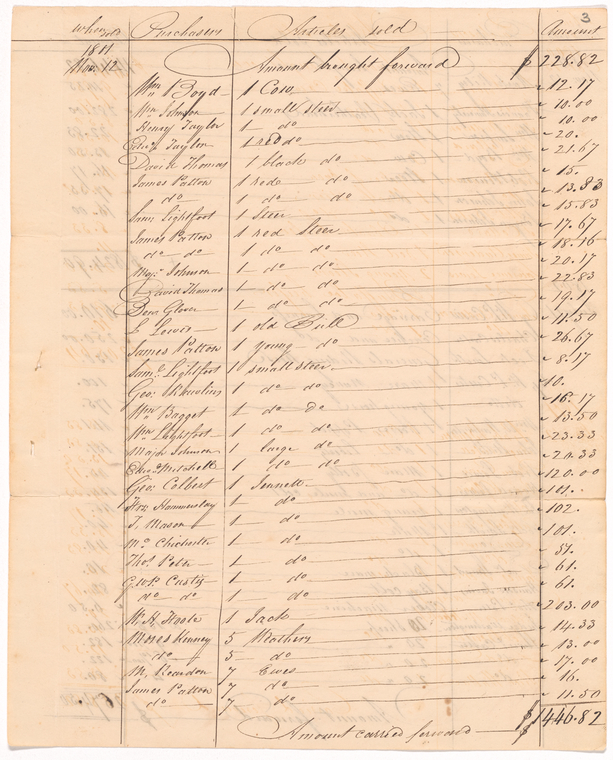 3
When sold Purchasers Articles sold Amount
1811
Nov. 12 Amount brought forward $ 228.82
Wm Boyd 1 Cow 12.17
Wm Johnson 1 small steer 10.00
Henry Taylor 1 do 10.00
Taylor 1 red do 20.
David Thomas 1 black do 21.67
James Patton 1 rede do 15.
do 1 do do 13.83
Saml Lightfoot 1 Steer 15.83
James Patton 1 red Steer 17.67
do do 1 do do 18.16
Majr Johnson 1 do do 20.17
David Thomas 1 do do 22.83
Benj Glover 1 do do 19.17
L Lewis 1 old Bull 11.50
James Patton 1 young do 26.67
Saml Lightfoot 1 small steer 8.17
Geo. 1 do do 10.
Wm Bagget 1 do do 16.17
Wm Lightfoot 1 do do 13.50
Major Johnson 1 large do 23.33
Mitchell 1 do do 21.33
Geo. Colbert 1 Jennett 120.00
Hammerslay 1 do 101.
T. Mason 1 do 102.
Mo Chichester 1 do 101.
Thos Peter 1 do 51.
G.W.P. Custis 1 do 61.
do do 1 do 61.
W. H. Foote 1 Jack 203.00
Moses Kenney 5 Weathers 14.33
do 5 do 13.00
M. Reardon 7 Ewes 17.00
James Patton 7 do 16.
do 7 do 11.50
Amount carried forward $ 1446.82